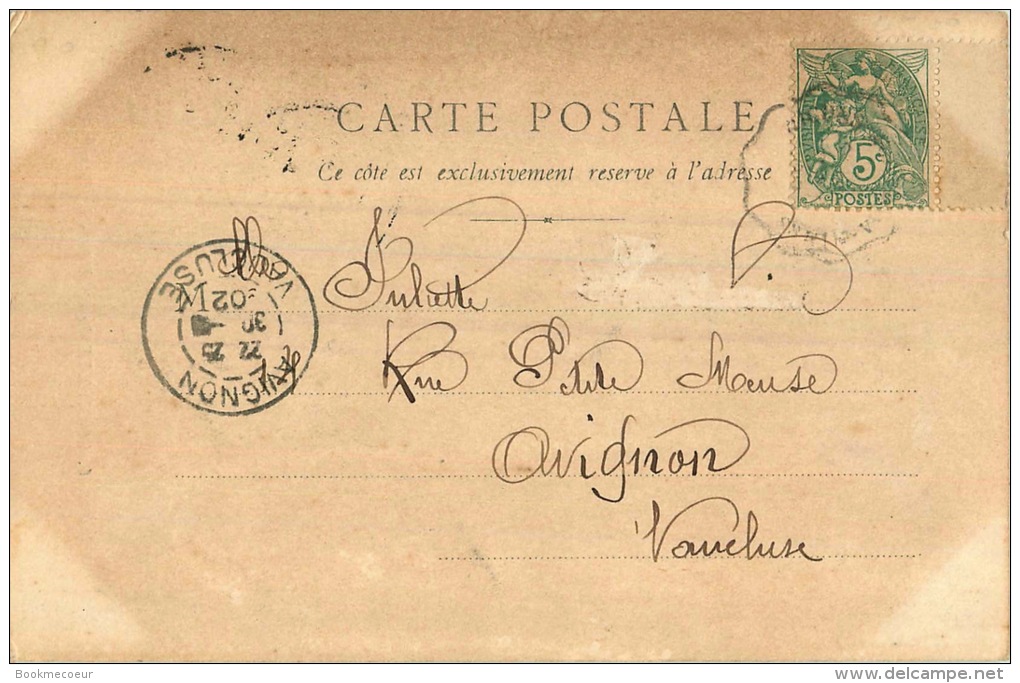 CARTE POSTALE
Ce côté est exclusivement reserve à l'adresse
5c
POSTES
Mlle Juliette
Rue Petite Meuse
Avignon
Vaucluse
AVIGNON
VAUCLUSE
22 25
30
02
Bookmecoeur
www.delcampe.net